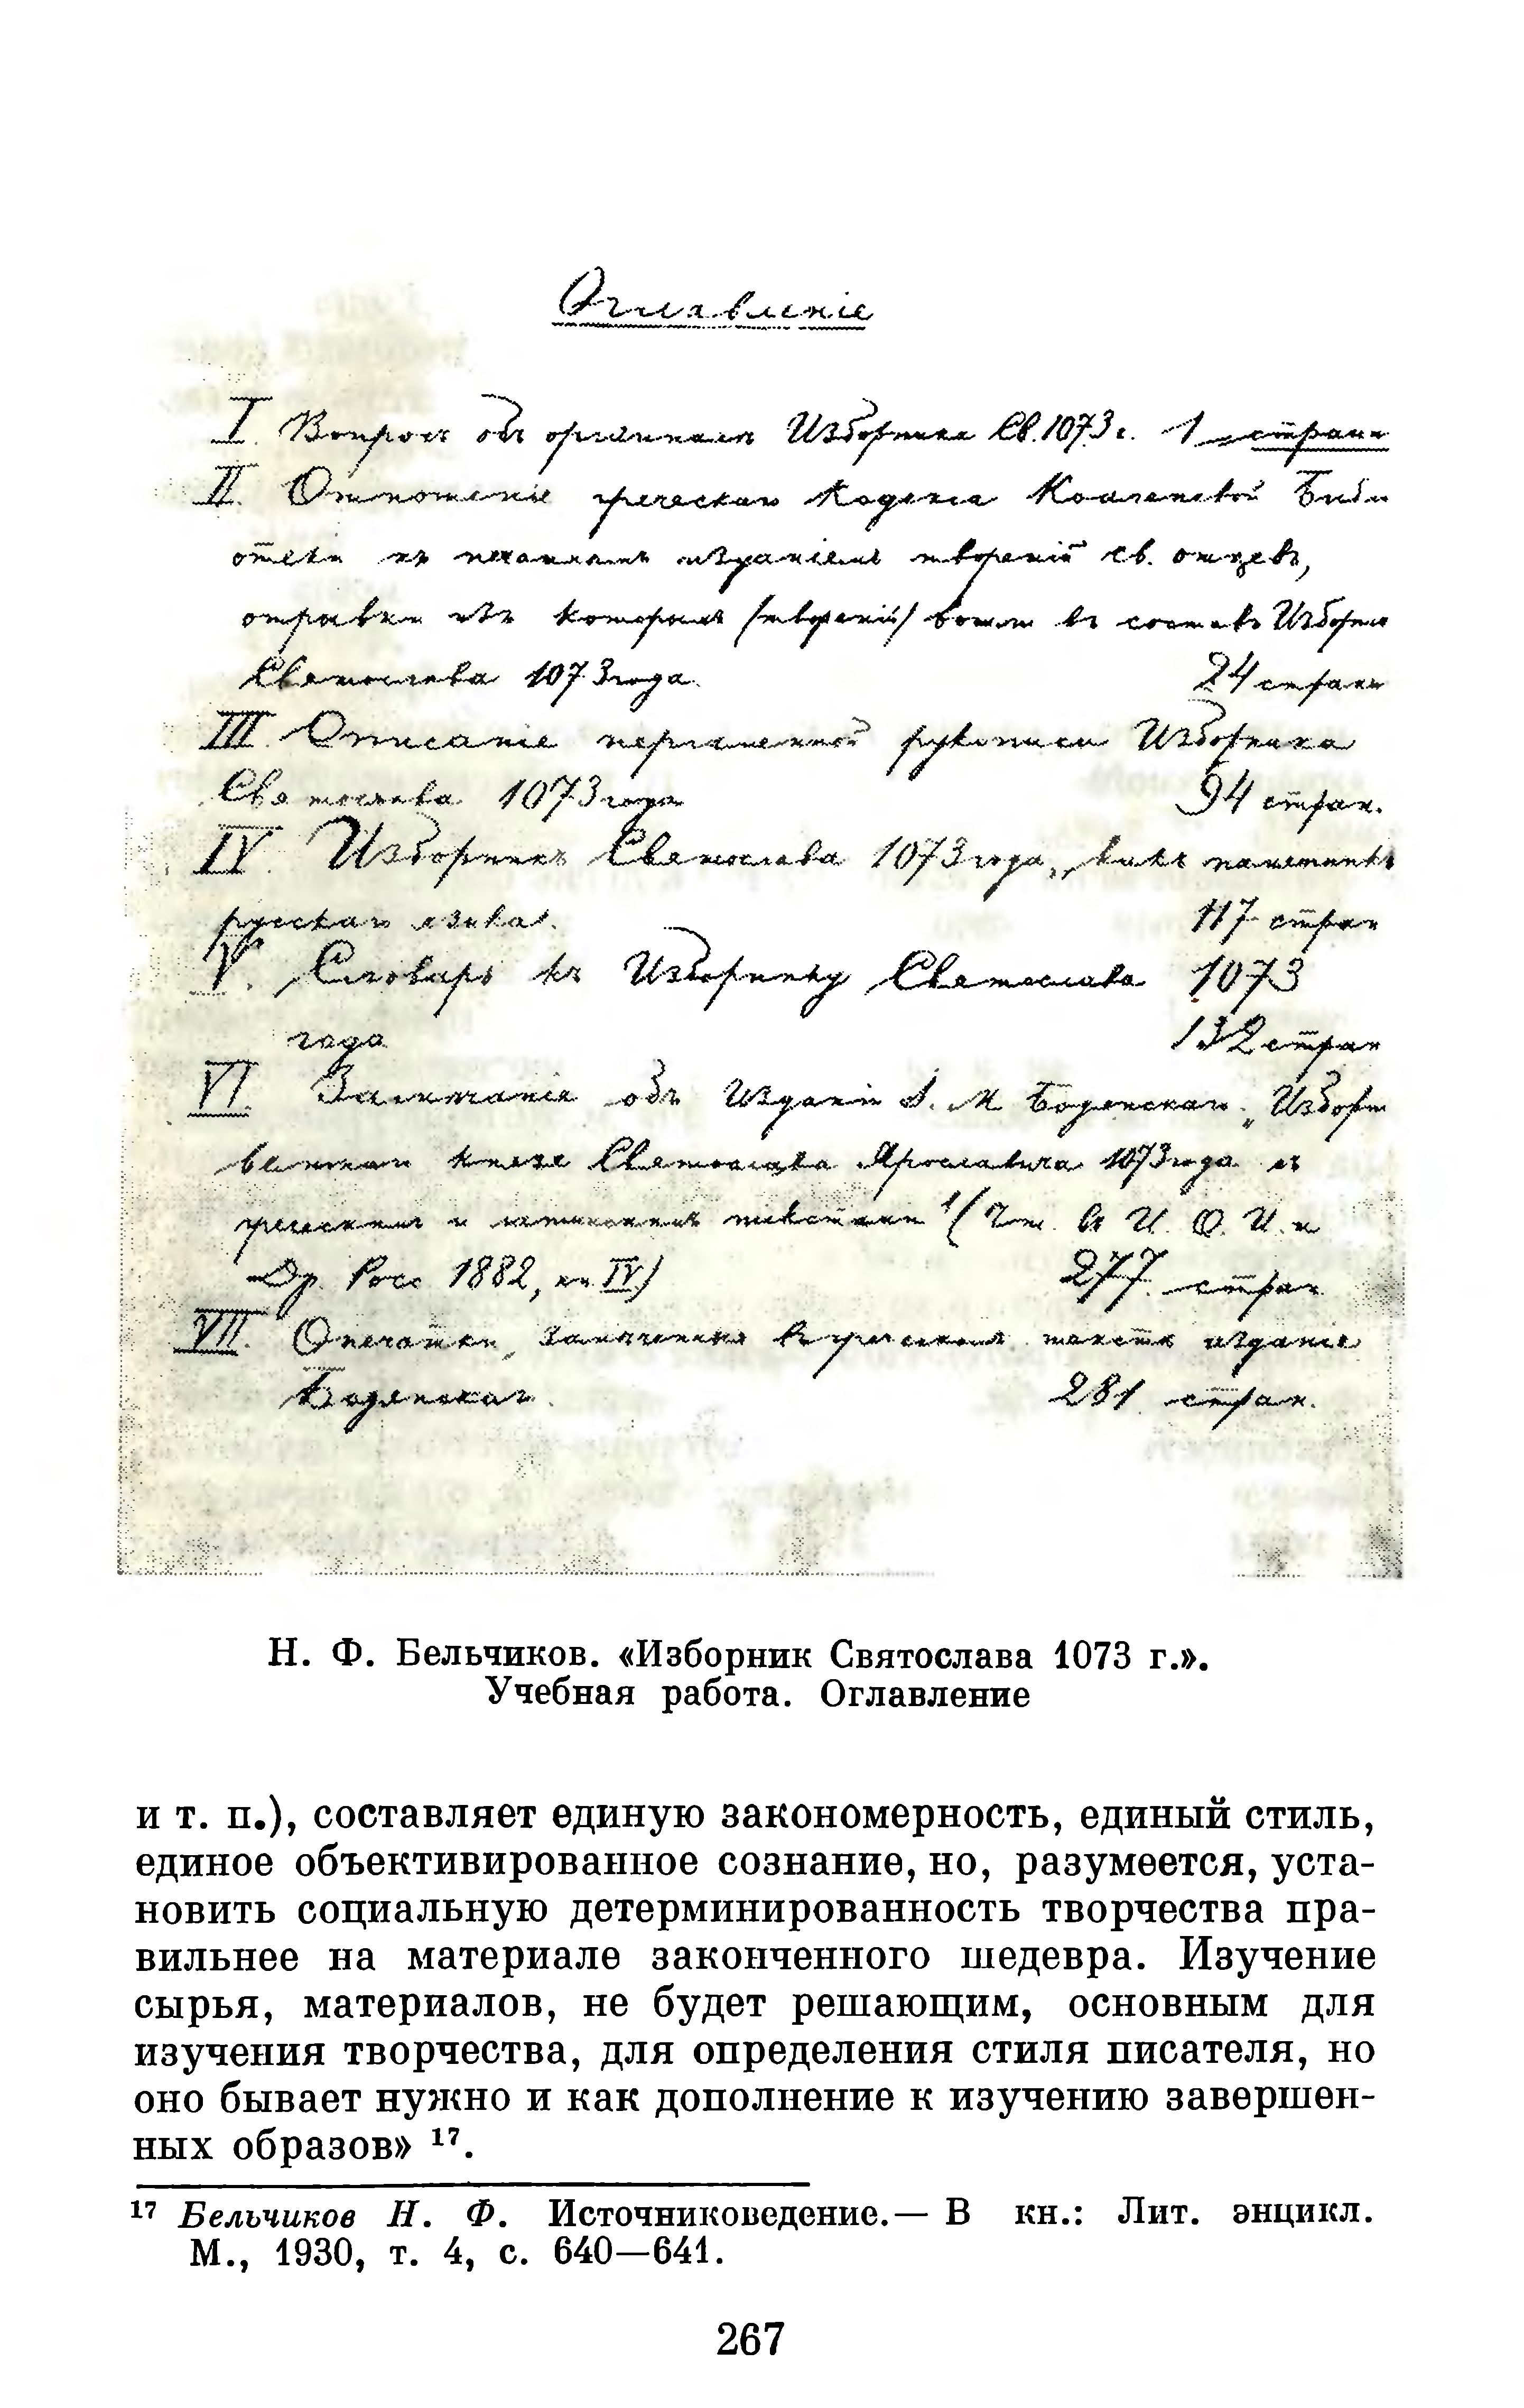 Оглавленіе
I. Вопросъ объ оригиналѣ Изборника Св. 1073 г. 1 стран
II. Отношеніе греческаго Кодекса Коаленевой Библи
отеки къ печатнымъ изданіямъ твореній св. отцевъ,
отрывки изъ которыхъ (твореній) вошли въ составъ Изборни
Святослава 1073 года. 24 стран
III. Описаніе пергаменной рукописи Изборника
Святослава 1073 года 94 стран.
IV. Изборникъ Святослава 1073 года, какъ памятникъ
русскаго языка. 117 стран
V. Словарь къ Изборнику Святослава 1073
года 132 стран
VI Замѣчанія объ Изданіи О. М. Бодянскаго „Изборн
великаго князя Святослава Ярославича 1073 года съ
греческимъ и латинскимъ текстами" (Чт. въ И. О. И. и
Др. Росс 1882, кн IV) 277 стран
VII. Опечатки, замѣченныя въ греческомъ текстѣ изданія
Бодянскаго. 281 стран.
Н. Ф. Бельчиков. «Изборник Святослава 1073 г.».
Учебная работа. Оглавление
и т. п.), составляет единую закономерность, единый стиль,
единое объективированное сознание, но, разумеется, уста-
новить социальную детерминированность творчества пра-
вильнее на материале законченного шедевра. Изучение
сырья, материалов, не будет решающим, основным для
изучения творчества, для определения стиля писателя, но
оно бывает нужно и как дополнение к изучению завершен-
ных образов» ¹⁷.
¹⁷ Бельчиков Н. Ф. Источниковедение.— В кн.: Лит. энцикл.
М., 1930, т. 4, с. 640—641.
267